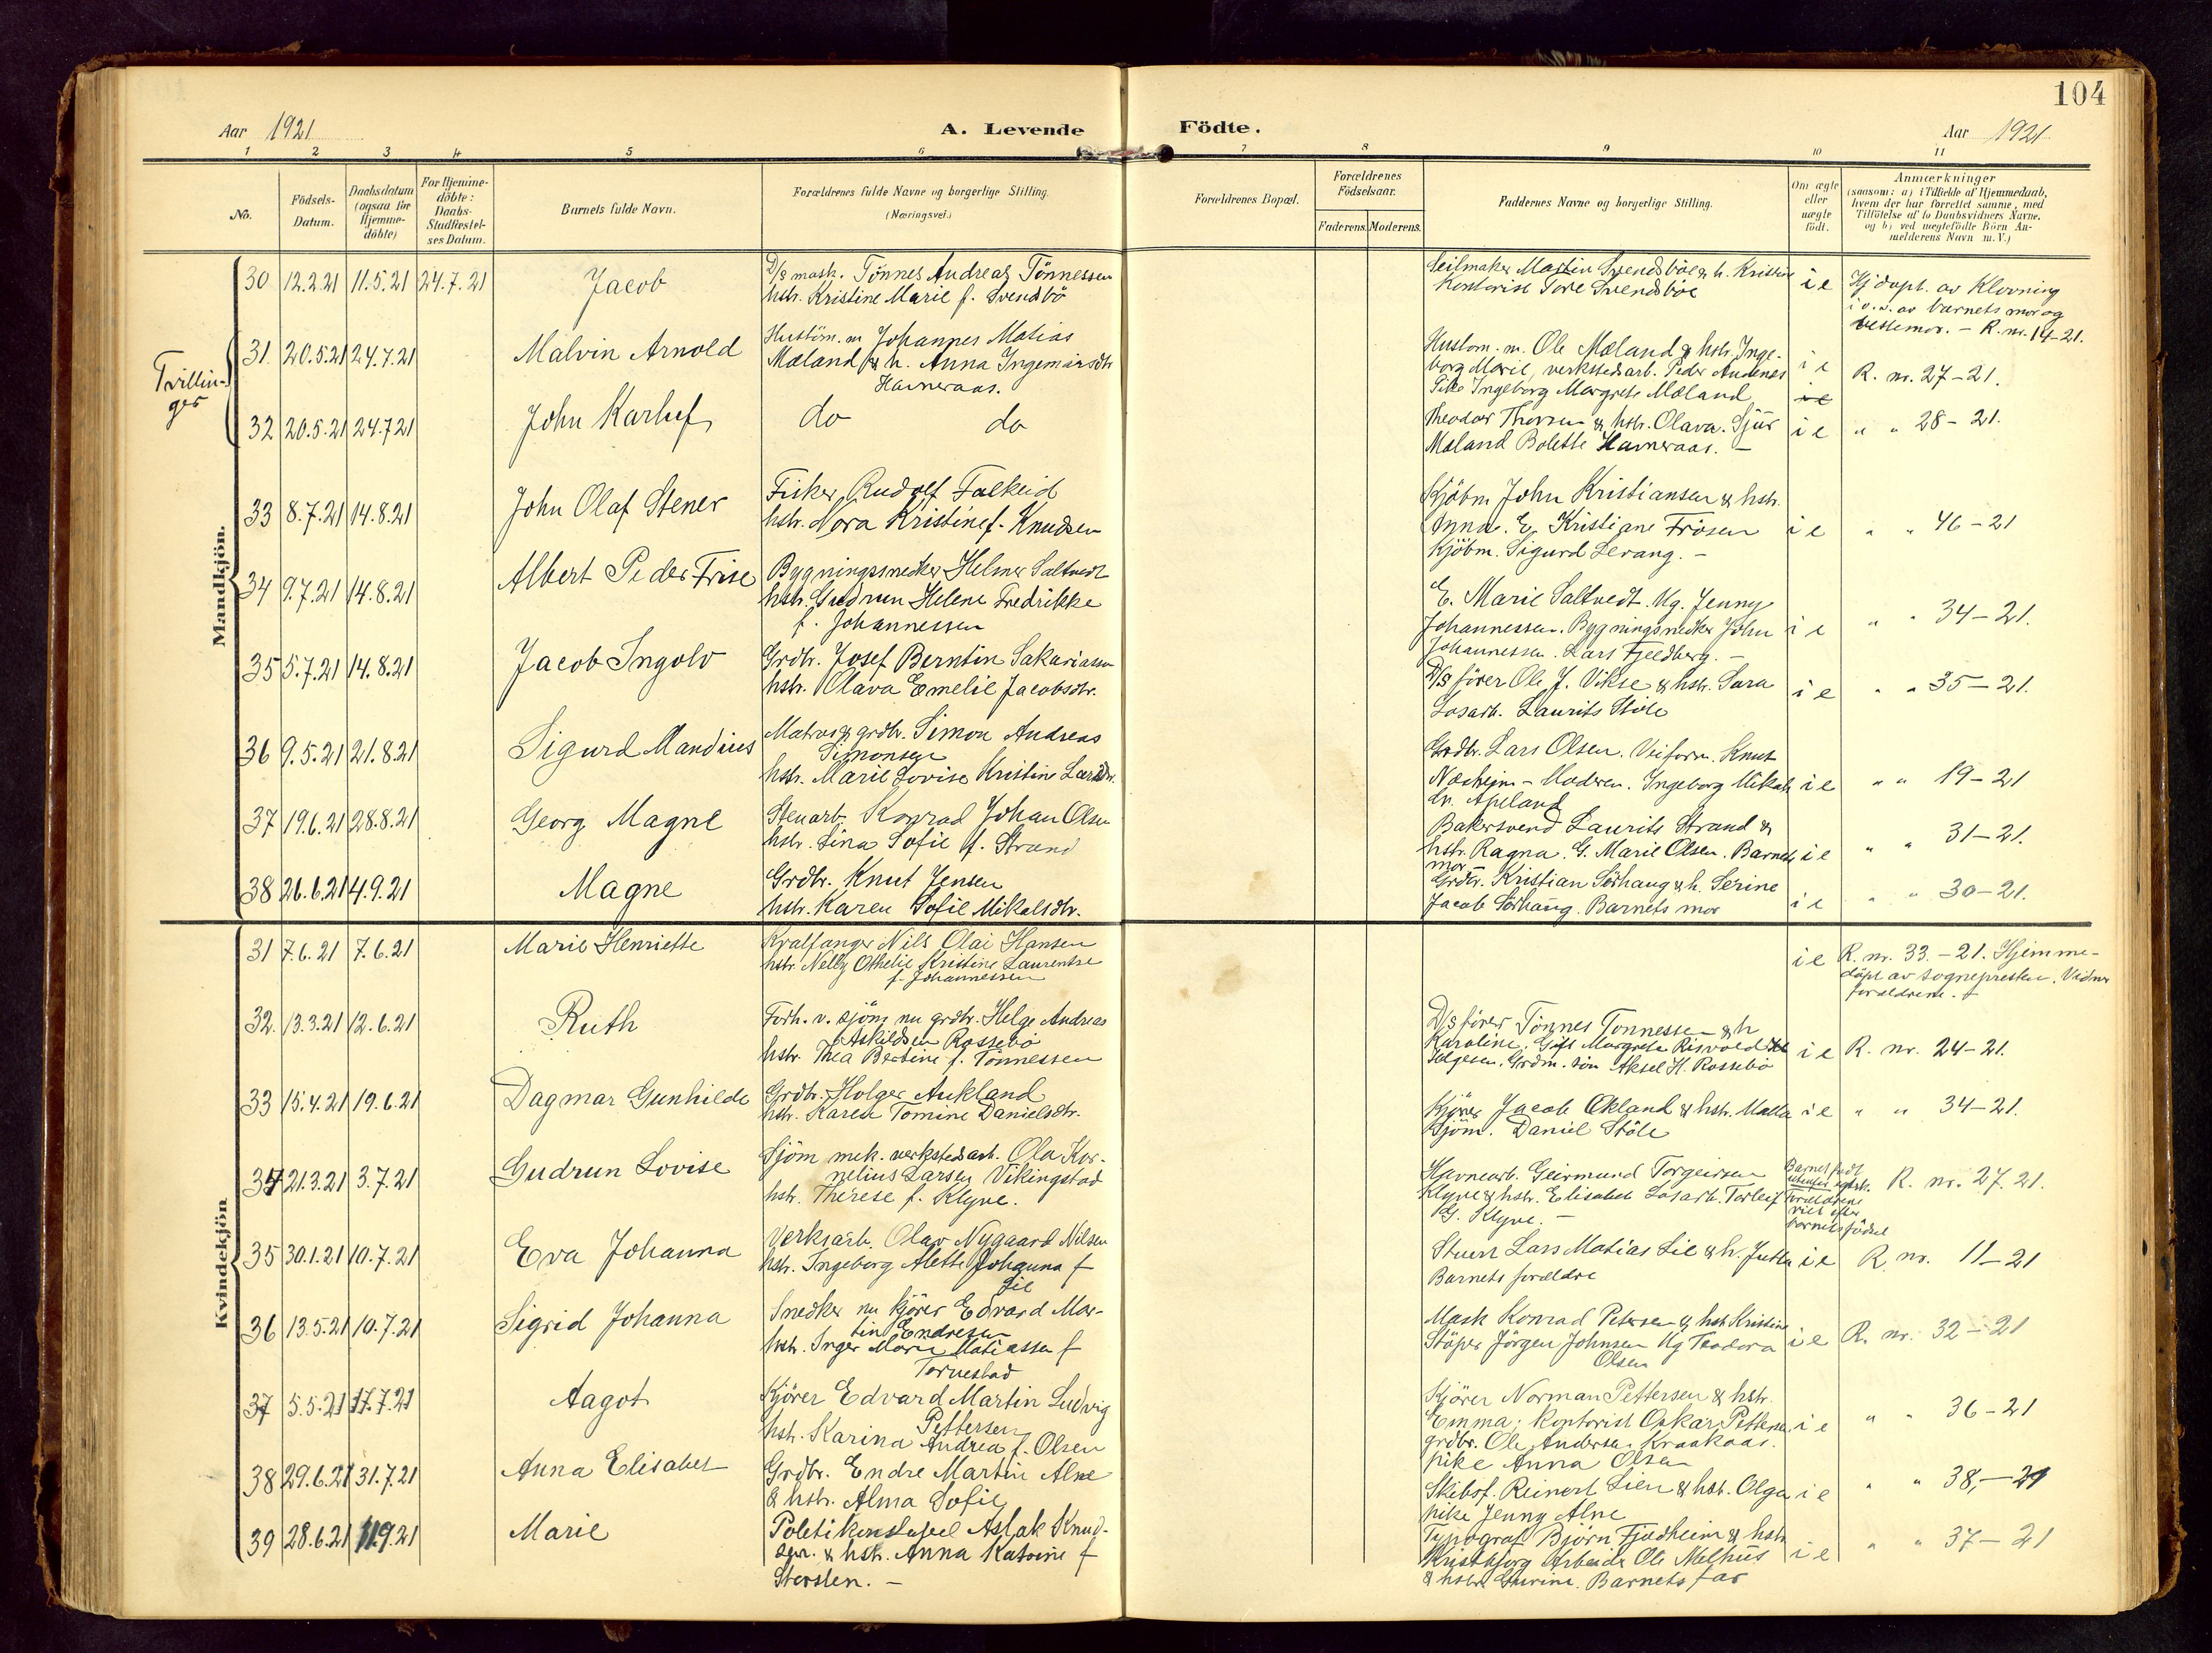 104
Aar 1921
A. Levende Födte.
Aar 1921
1 2 3 4 5 6 7 8 9 10 11
No.
Födsels-
Datum.
Daabsdatum
(ogsaa for
Hjemme-
döbte)
For Hjemme-
döbte:
Daabs-
Stadfæstel-
ses Datum.
Barnets fulde Navn.
Forældrenes fulde Navne og borgerlige Stilling.
(Næringsvei.)
Forældrenes Bopæl.
Forældrenes
Födselsaar.
Faderens. Moderens.
Faddernes Navne og borgerlige Stilling.
Om ægte
eller
uægte
födt.
Anmærkninger
(saasom: a) i Tilfælde af Hjemmedaab,
hvem der har forrettet samme, med
Tilföielse af to Daabsvidners Navne,
og b) ved uægtefödte Börn An-
melderens Navn m. V.)
Mandkjön.
30 12.2.21 11.5.21 24.7.21 Jacob
D/s mask. Tönnes Andreas Tönnessen
hstr. Kristine Marie f. Svendbö
Seilmaker Martin Svendsböe & h. Kristine
Kontorist Tore Svendsböe
i e
Hj döpt. av Klovning
i o. v. av barnets mor og
bestemor. - R. nr. 14-21.
Tvillin-
ger
31 20.5.21 24.7.21 Malvin Arnold
Hustöm. m Johannes Matias
Mæland & h. Anna Ingemarsdtr
Havneraas.
Hustom. m. Ole Mæland & hstr. Inge-
borg Marie, verkstedsarb. Peder Audenes
Pike Ingeborg Margrete Mæland
i e
R. nr. 27-21.
32 20.5.21 24.7.21 John Karluf
do do
Theodor Thorsen & hstr. Olava. Sjur
Mæland Bolette Havneraas. -
i e
" " 28-21.
33 8.7.21 14.8.21 John Olaf Stener
Fisker Rudolf Falkeid
hstr. Nora Kristine f. Knudsen
Kjöbm John Kristiansen & hstr.
Anna. E. Kristiane Frösen
Kjöbm. Sigurd Lerang. -
i e
" " 46-21
34 9.7.21 14.8.21 Albert Peder Frise
Bygningssnedker Helmer Saltvedt
hstr. Gudrun Helene Fredrikke
f. Johannessen
E. Marie Saltvedt. Ug. Jenny
Johannessen. Bygningsnedker John
Johannessen. Lars Fjeldberg. -
i e
" " 34-21.
35 5.7.21 14.8.21 Jacob Ingolv
Grdbr. Josef Berntin Sakariassen
hstr. Olava Emelie Jacobsdtr.
D/s förer Ole J. Vikse & hstr. Sara
Losarb. Laurits Stöle
i e
" " 35-21.
36 9.5.21 21.8.21 Sigurd Mandius
Matros & grdbr. Simon Andreas
Simonsen
hstr. Marie Lovise Kristin Larsdtr.
Grdbr. Lars Olsen. Veiform. Knut
Næsheim - Moderen. Ingeborg Mikals
dtr. Apeland
i e
" " 19-21
37 19.6.21 28.8.21 Georg Magne
Stenarb. Konrad Johan Olsen
hstr. Lina Sofie f. Strand
Bakersvend Laurits Strand &
hstr. Ragna. G. Marie Olsen. Barnets
mor -
i e
" " 31-21.
38 26.6.21 4.9.21 Magne
Grdbr. Knut Jensen
hstr. Karen Sofie Mikalsdtr.
Grdbr. Kristian Sörhaug & h. Serine
Jacob Sörhaug. Barnets mor
i e
" " 30-21.
Kvindekjön
31 7.6.21 7.6.21 Marie Henriette
Hvalfanger Nils Olai Hansen
hstr. Nelly Othelie Kristine Laurentse
f. Johannessen
i e
R. nr. 33.-21. Hjemme-
döpt av sognepresten. Vidner
forældrene. +
32. 13.3.21 12.6.21 Ruth
Forh. v. sjöm nu grdbr. Helge Andreas
Askildsen Rossebö
hstr. Thea Bertine f. Tönnessen
D/s förer Tönnes Tonnessen & h
Karoline. Gift Margrete Risvold
Helgesen. Grdm. sön Aksel H. Rossebö
i e
R. nr. 24-21.
33 15.4.21 19.6.21 Dagmar Gunhilde
Grdbr. Holger Aukland
hstr. Karen Tomine Danielsdtr.
Kjörer Jacob Økland & hstr. Malla
Sjöm. Daniel Stöle
i e
" " 34-21.
34 21.3.21 3.7.21 Gudrun Lovise
Sjöm mek. verkstedsarb. Ola Kor-
nelius Larsen Vikingstad
hstr. Therese f. Klyve.
Havnearb. Geirmund Torgeirsen
Klyve & hstr. Elisabet Losarb. Torleif
G. Klyve. -
Barnet födt
utenfor egtesk.
Forældrene
viet efter
barnets födsel
R. nr. 27. 21.
35 30.1.21 10.7.21 Eva Johanna
Verksarb. Olav Nygaard Nilsen
hstr. Ingeborg Alette Johanna f
Lie
Stuert Lars Matias Lie & h. Jutta
Barnets forældre
i e
R. nr. 11-21
36 13.5.21 10.7.21 Sigrid Johanna
Snedker nu kjörer Edvard Mar-
tin Endresen
hstr. Inger Marie Matiassen f
Torvestad
Mask Konrad Petersen & hstr Kristine
Stöper Jörgen Johnsen Ug Teodora
Olsen
i e
R. nr. 32-21
37 5.5.21 17.7.21 Aagot
Kjörer Edvard Martin Ludvig
Pettersen
hstr. Karina Andrea f. Olsen
Kjörer Norman Pettersen & hstr.
Emma; Kontorist Oskar Pettersen
grdbr. Ole Andersen Kraakaas.
pike Anna Olsen
i e
" " 36-21
38 29.6.21 31.7.21 Anna Elisabet
Grdbr. Endre Martin Alne
& hstr. Alma Sofie
Skibsf. Reinert Lien & hstr. Olga
pike Jenny Alne
i e
" " 38,-21
39 28.6.21 11.9.21 Marie
Politikonstabel Aslak Knud-
sen. & hstr. Anna Katrine f
Storslen. -
Typograf Björn Fjedheim & hstr
Kristbjorg Arbeider Ole Melhus
& hstr. Gurine. Barnets far
i e
" " 37-21